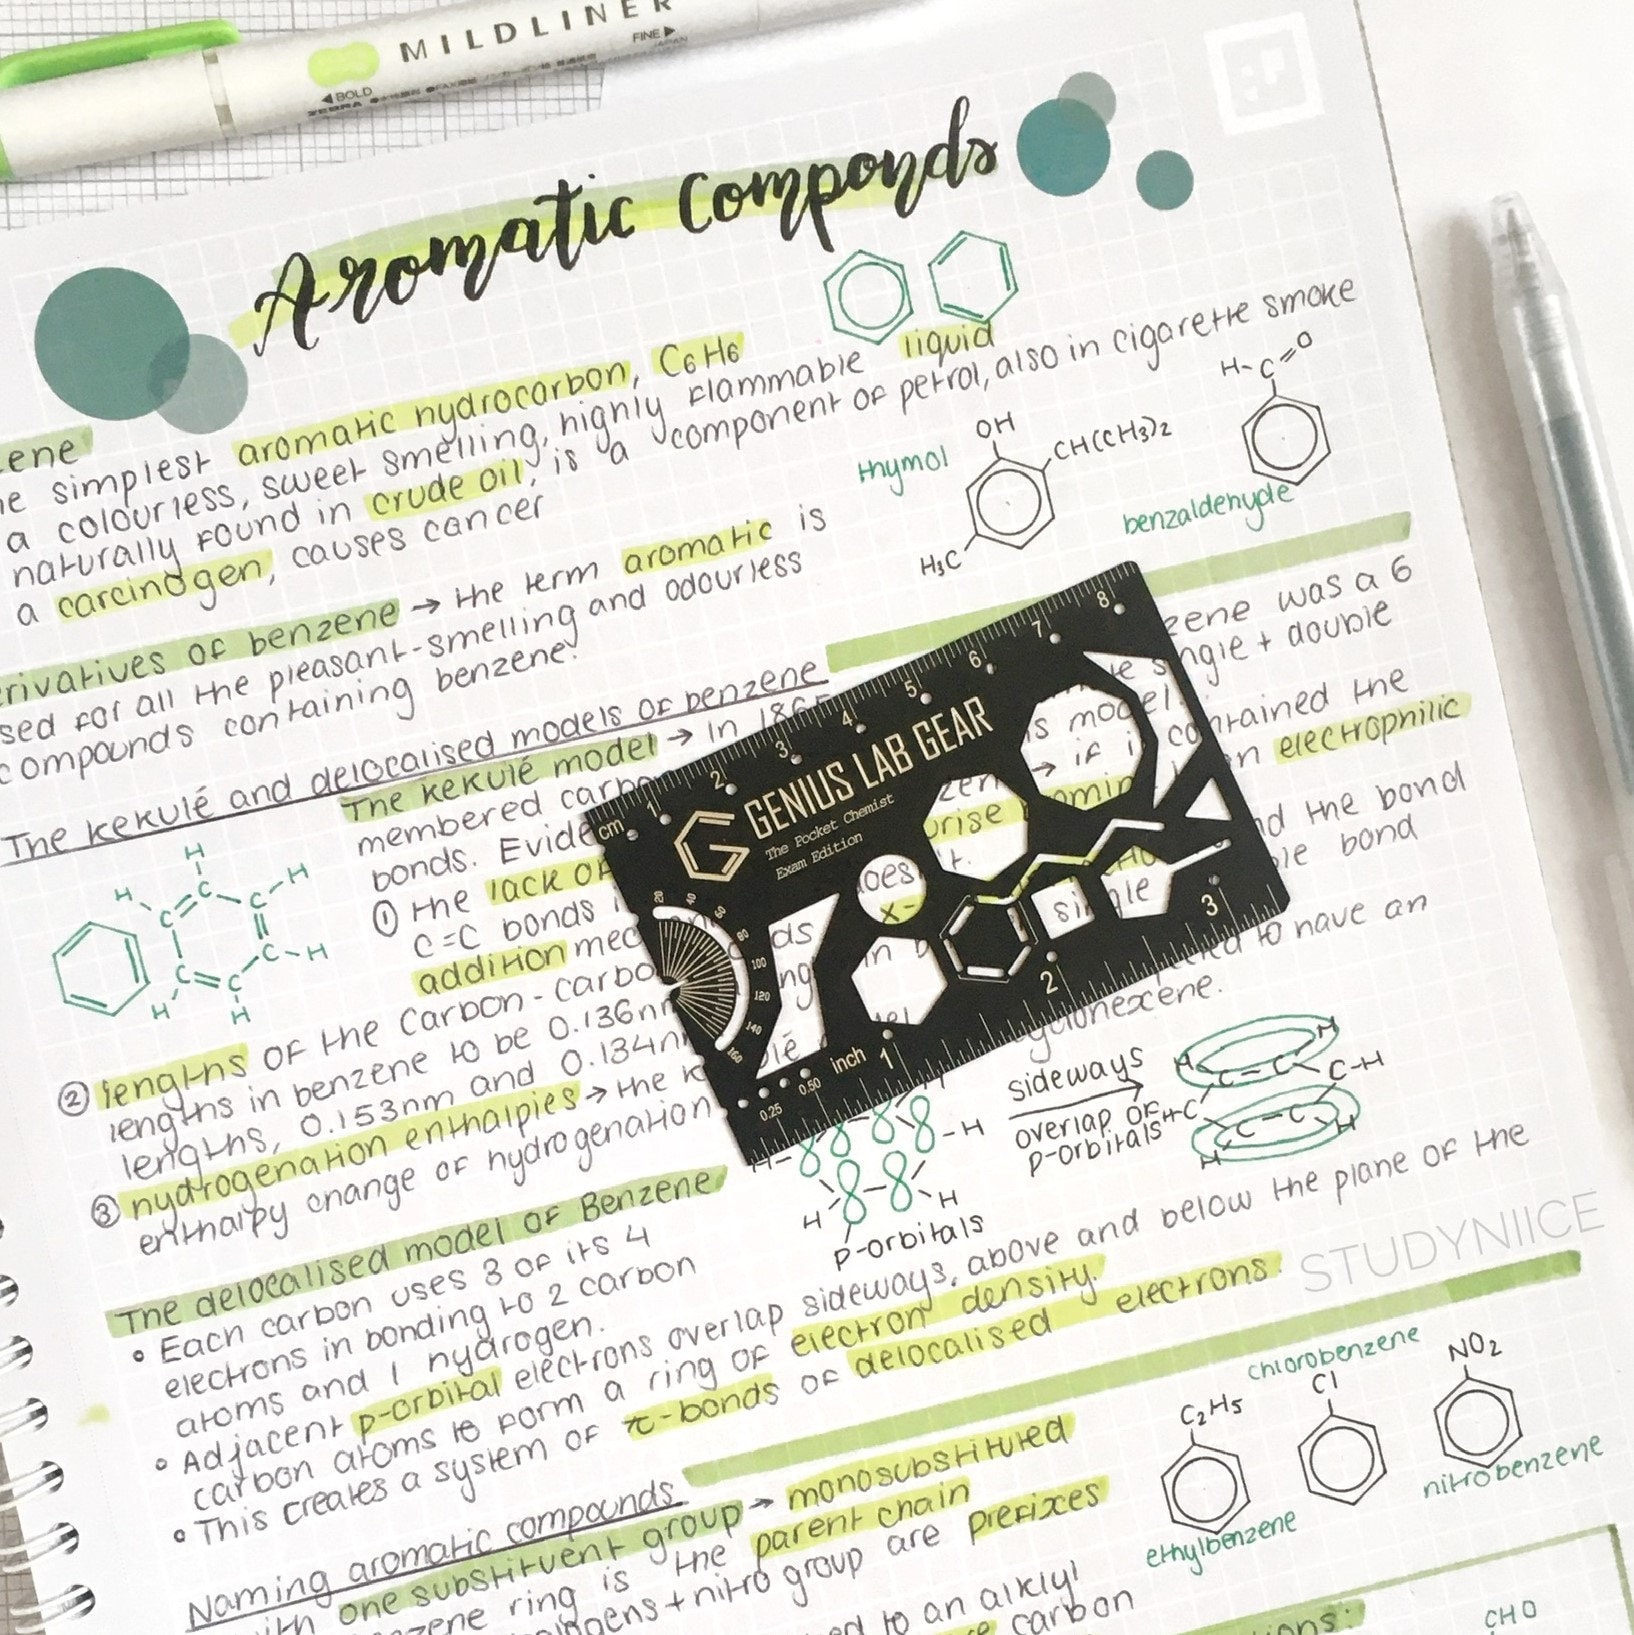 MILDLINER
◀BOLD
FINE▶
ZEBRA
Aromatic Componds
aromatic hydrocarbon, C6H6
simplest
a colourless, sweet smelling, highly flammable liquid
naturally found in crude oil, is a component of petrol, also in cigarette smoke
a carcinogen, causes cancer
thymol
OH
CH(CH3)2
H3C
H-C=O
benzaldehyde
of benzene → the term aromatic is
for all the pleasant-smelling and odourless
compounds containing benzene.
The kekulé and delocalised models of benzene
The kekulé model → in
was a 6
membered
+ double
bonds.
① the lack of
C=C bonds
if
the
addition
electrophilic
H
H
C
C
C
H
C
C
C
H
H
H
② lengths of the carbon-
the bond
lengths in benzene to be 0.136nm
bond
lengths, 0.153nm and
③ hydrogenation enthalpies → the
enthalpy change of hydrogenation
to have an
cm 1 2 3 4 5 6 7 8
GENIUS LAB GEAR
The Pocket Chemist
Exam Edition
20 40 60 80 100 120 140 160
0.25 0.50 inch 1 2 3
The delocalised model of Benzene
• Each carbon uses 3 of its 4
electrons in bonding to 2 carbon
atoms and 1 hydrogen.
• Adjacent p-orbital electrons overlap sideways, above and below the plane of the
carbon atoms to form a ring of electron density.
• This creates a system of π-bonds of delocalised electrons.
H-
-H
H
H
p-orbitals
sideways
overlap of
p-orbitals
H
H
C-C
C-H
H-C
C-C
H
H
STUDYNIICE
Naming aromatic compounds
one substituent group → monosubstituted
ring is the parent chain
+ nitro group are prefixes
to an alkyl
carbon
C2H5
ethylbenzene
chlorobenzene
Cl
NO2
nitrobenzene
CHO